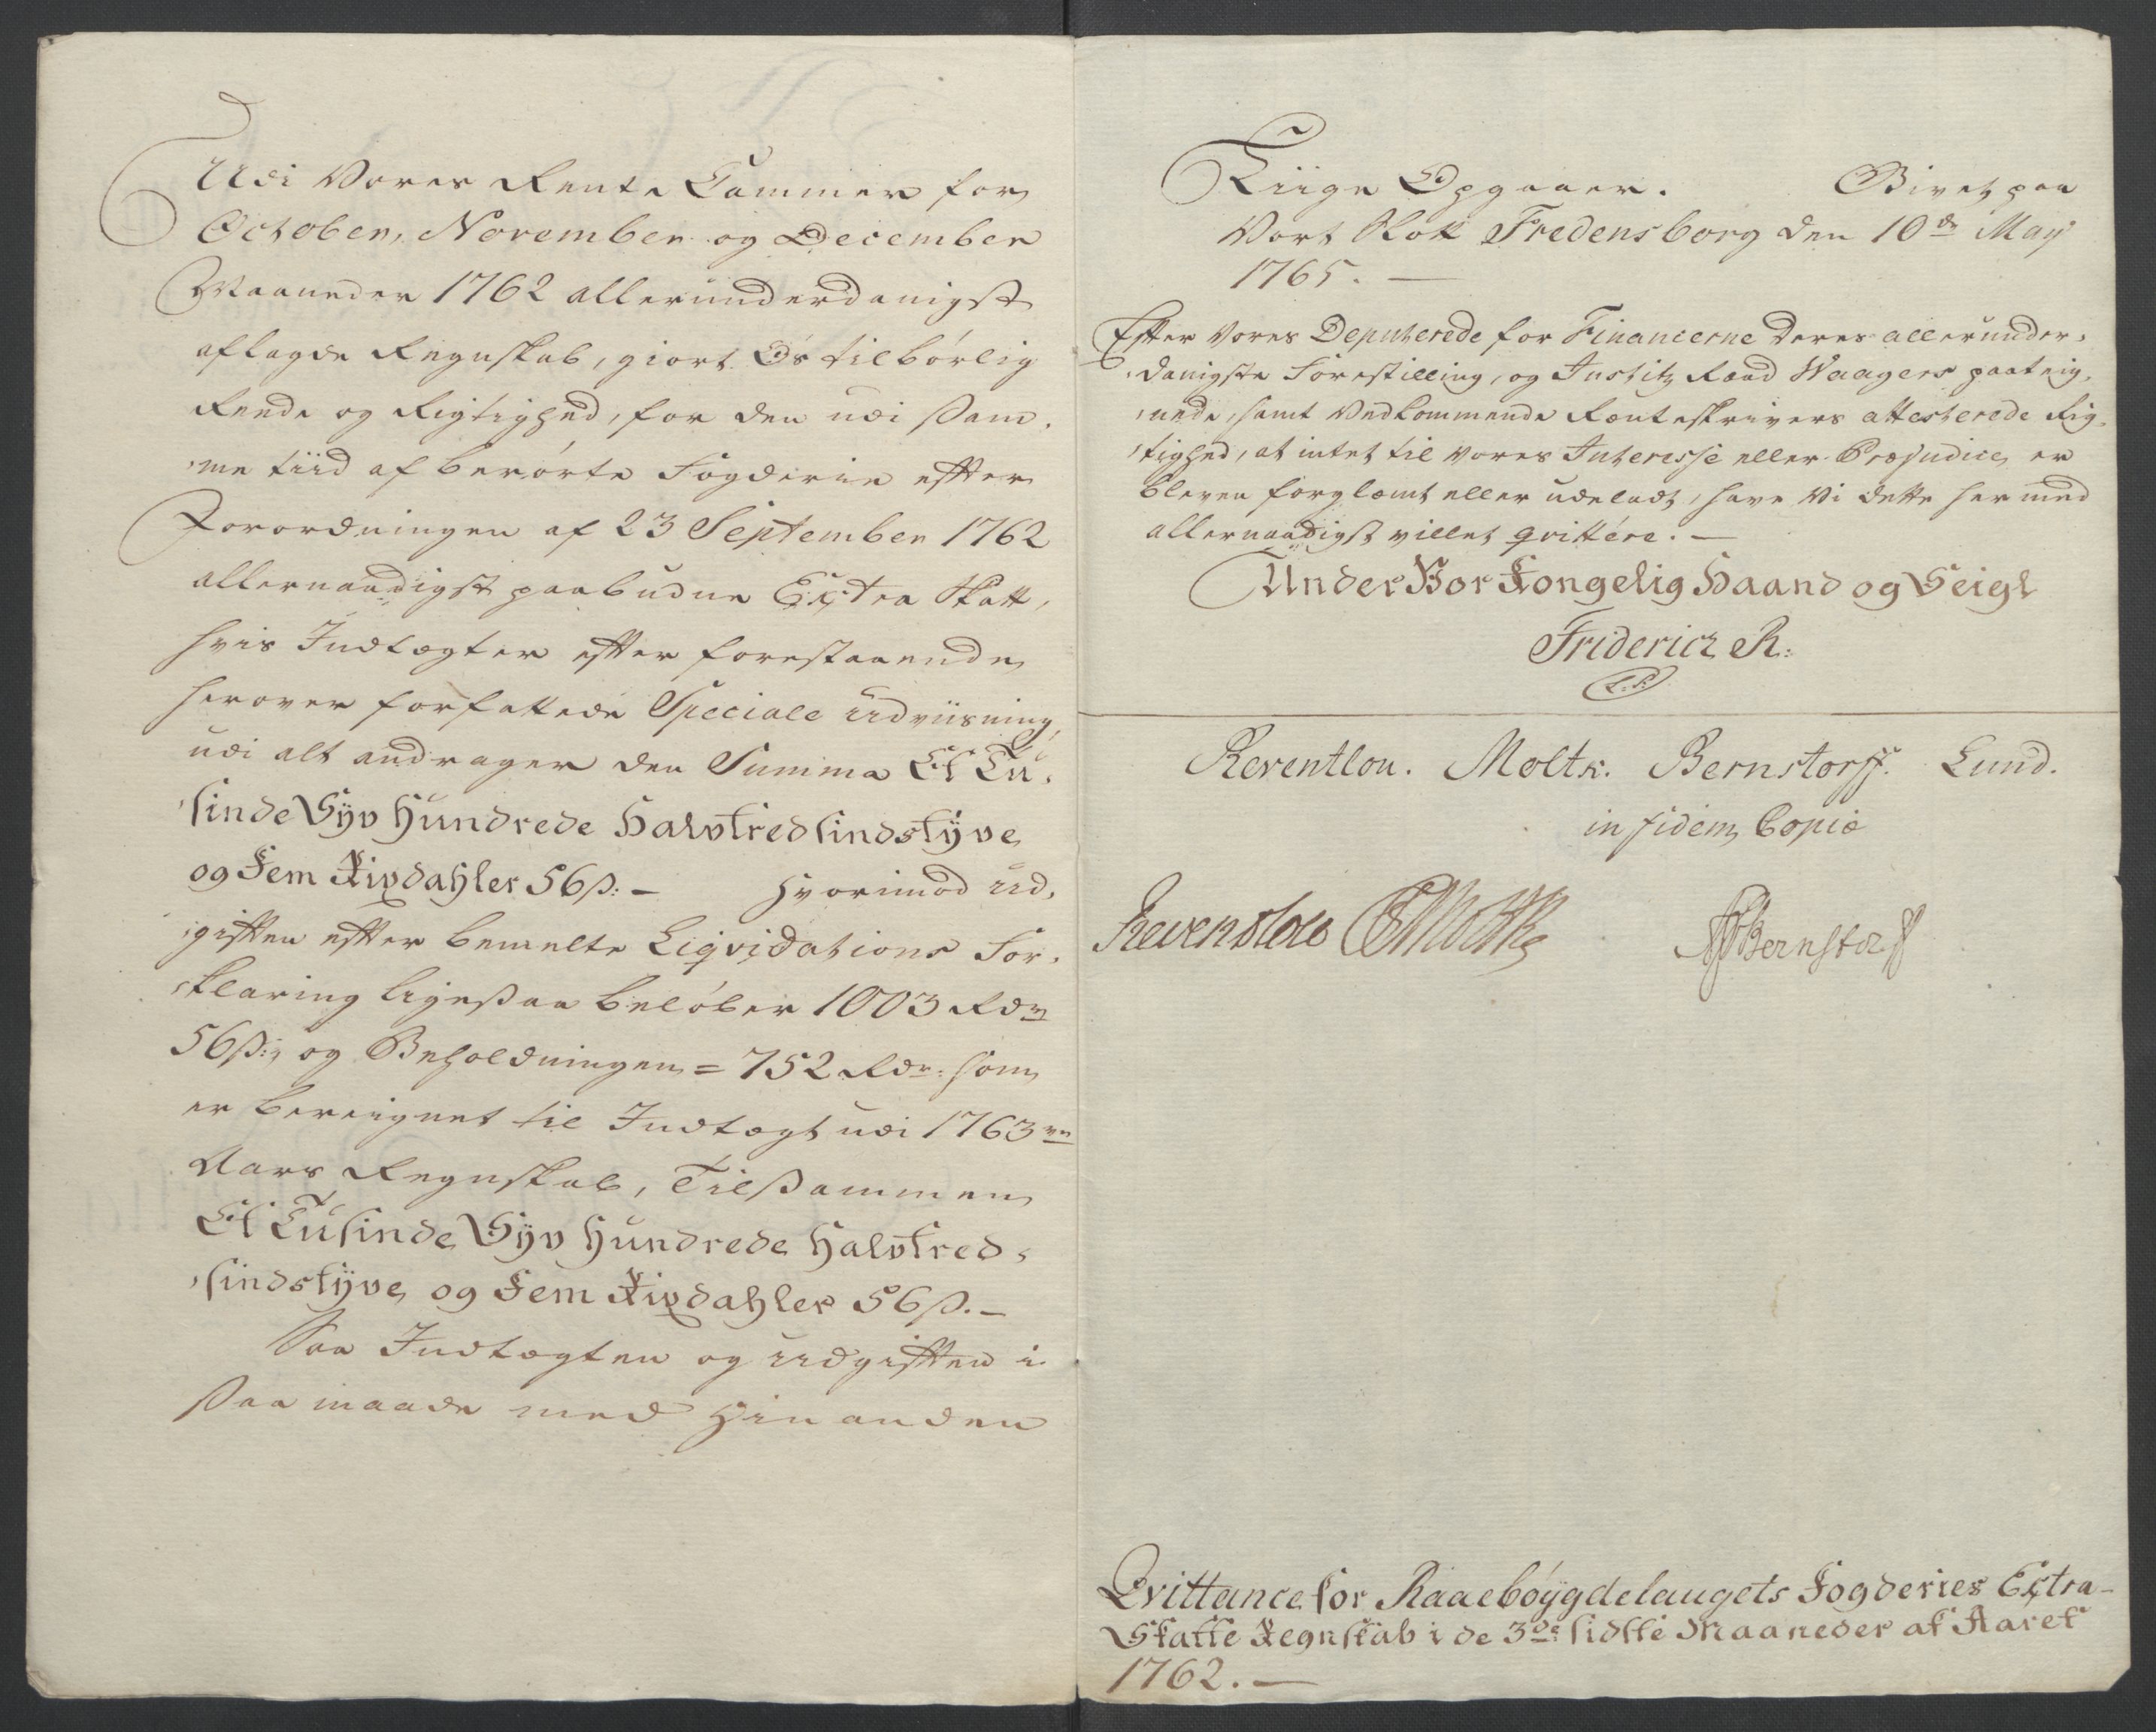 Udi Vores Rente Cammer for
October, November og December
Maaneder 1762 allerunderdanigst
aflagde Regnskab, giort Os tilbørlig
Reede og Rigtighed, for den udi Sam-
-me tiid af berørte Fogderie efter
Forordningen af 23 September 1762
allernaadigst paabudne Extra Skatt,
hvis Indtægter efter forestaaende
herover forfattede Speciale Udviisning,
udi alt andrager den Summa Et Tu-
-sinde Syv Hundrede Halvtredsindstÿve
og Fem Rixdahler 56 ß: -       Hvorimod Ud-
-giften efter bemelte Liqvidations For-
-klaring ligesaa beløber 1003 Rdr
56 ß: og Beholdningen = 752 Rdr: som
er bereignet til Indtægt udi 1763de
Aars Regnskab, Tilsammen
Et Tusinde Syv Hundrede Halvtred-
-sindstÿve og Fem Rixdahler 56 ß. -
Saa Indtægten og Udgiften i
saa maade med Hinanden
Liige Opgaaer.       Givet paa
Vort Slott Fredensborg den 10de Maÿ
1765. —
Efter Vores Deputerede for Financerne deres allerunder-
-danigste Forestilling, og Justitz Raad Waagers paateig-
-nede, samt Vedkommende Renteskrivers attesterede Rig-
-tighed, at intet til Vores Interesse eller Præjudice er
bleven forglemt eller udeladt, have Vi dette her med
allernaadigst villet qvittére. —
Under Vor Kongelig Haand og Seigl
Friderich R:
L.S.
Reventlou. Moltk. Bernstorff. Lund.
in fidem Copiæ
Reventlow Moltke Bernstorff
Qvittance for Raaebøÿgdelaugets Fogderies Extra-
Skatte Regnskab i de 3de sidste Maaneder af Aaret
1762. —